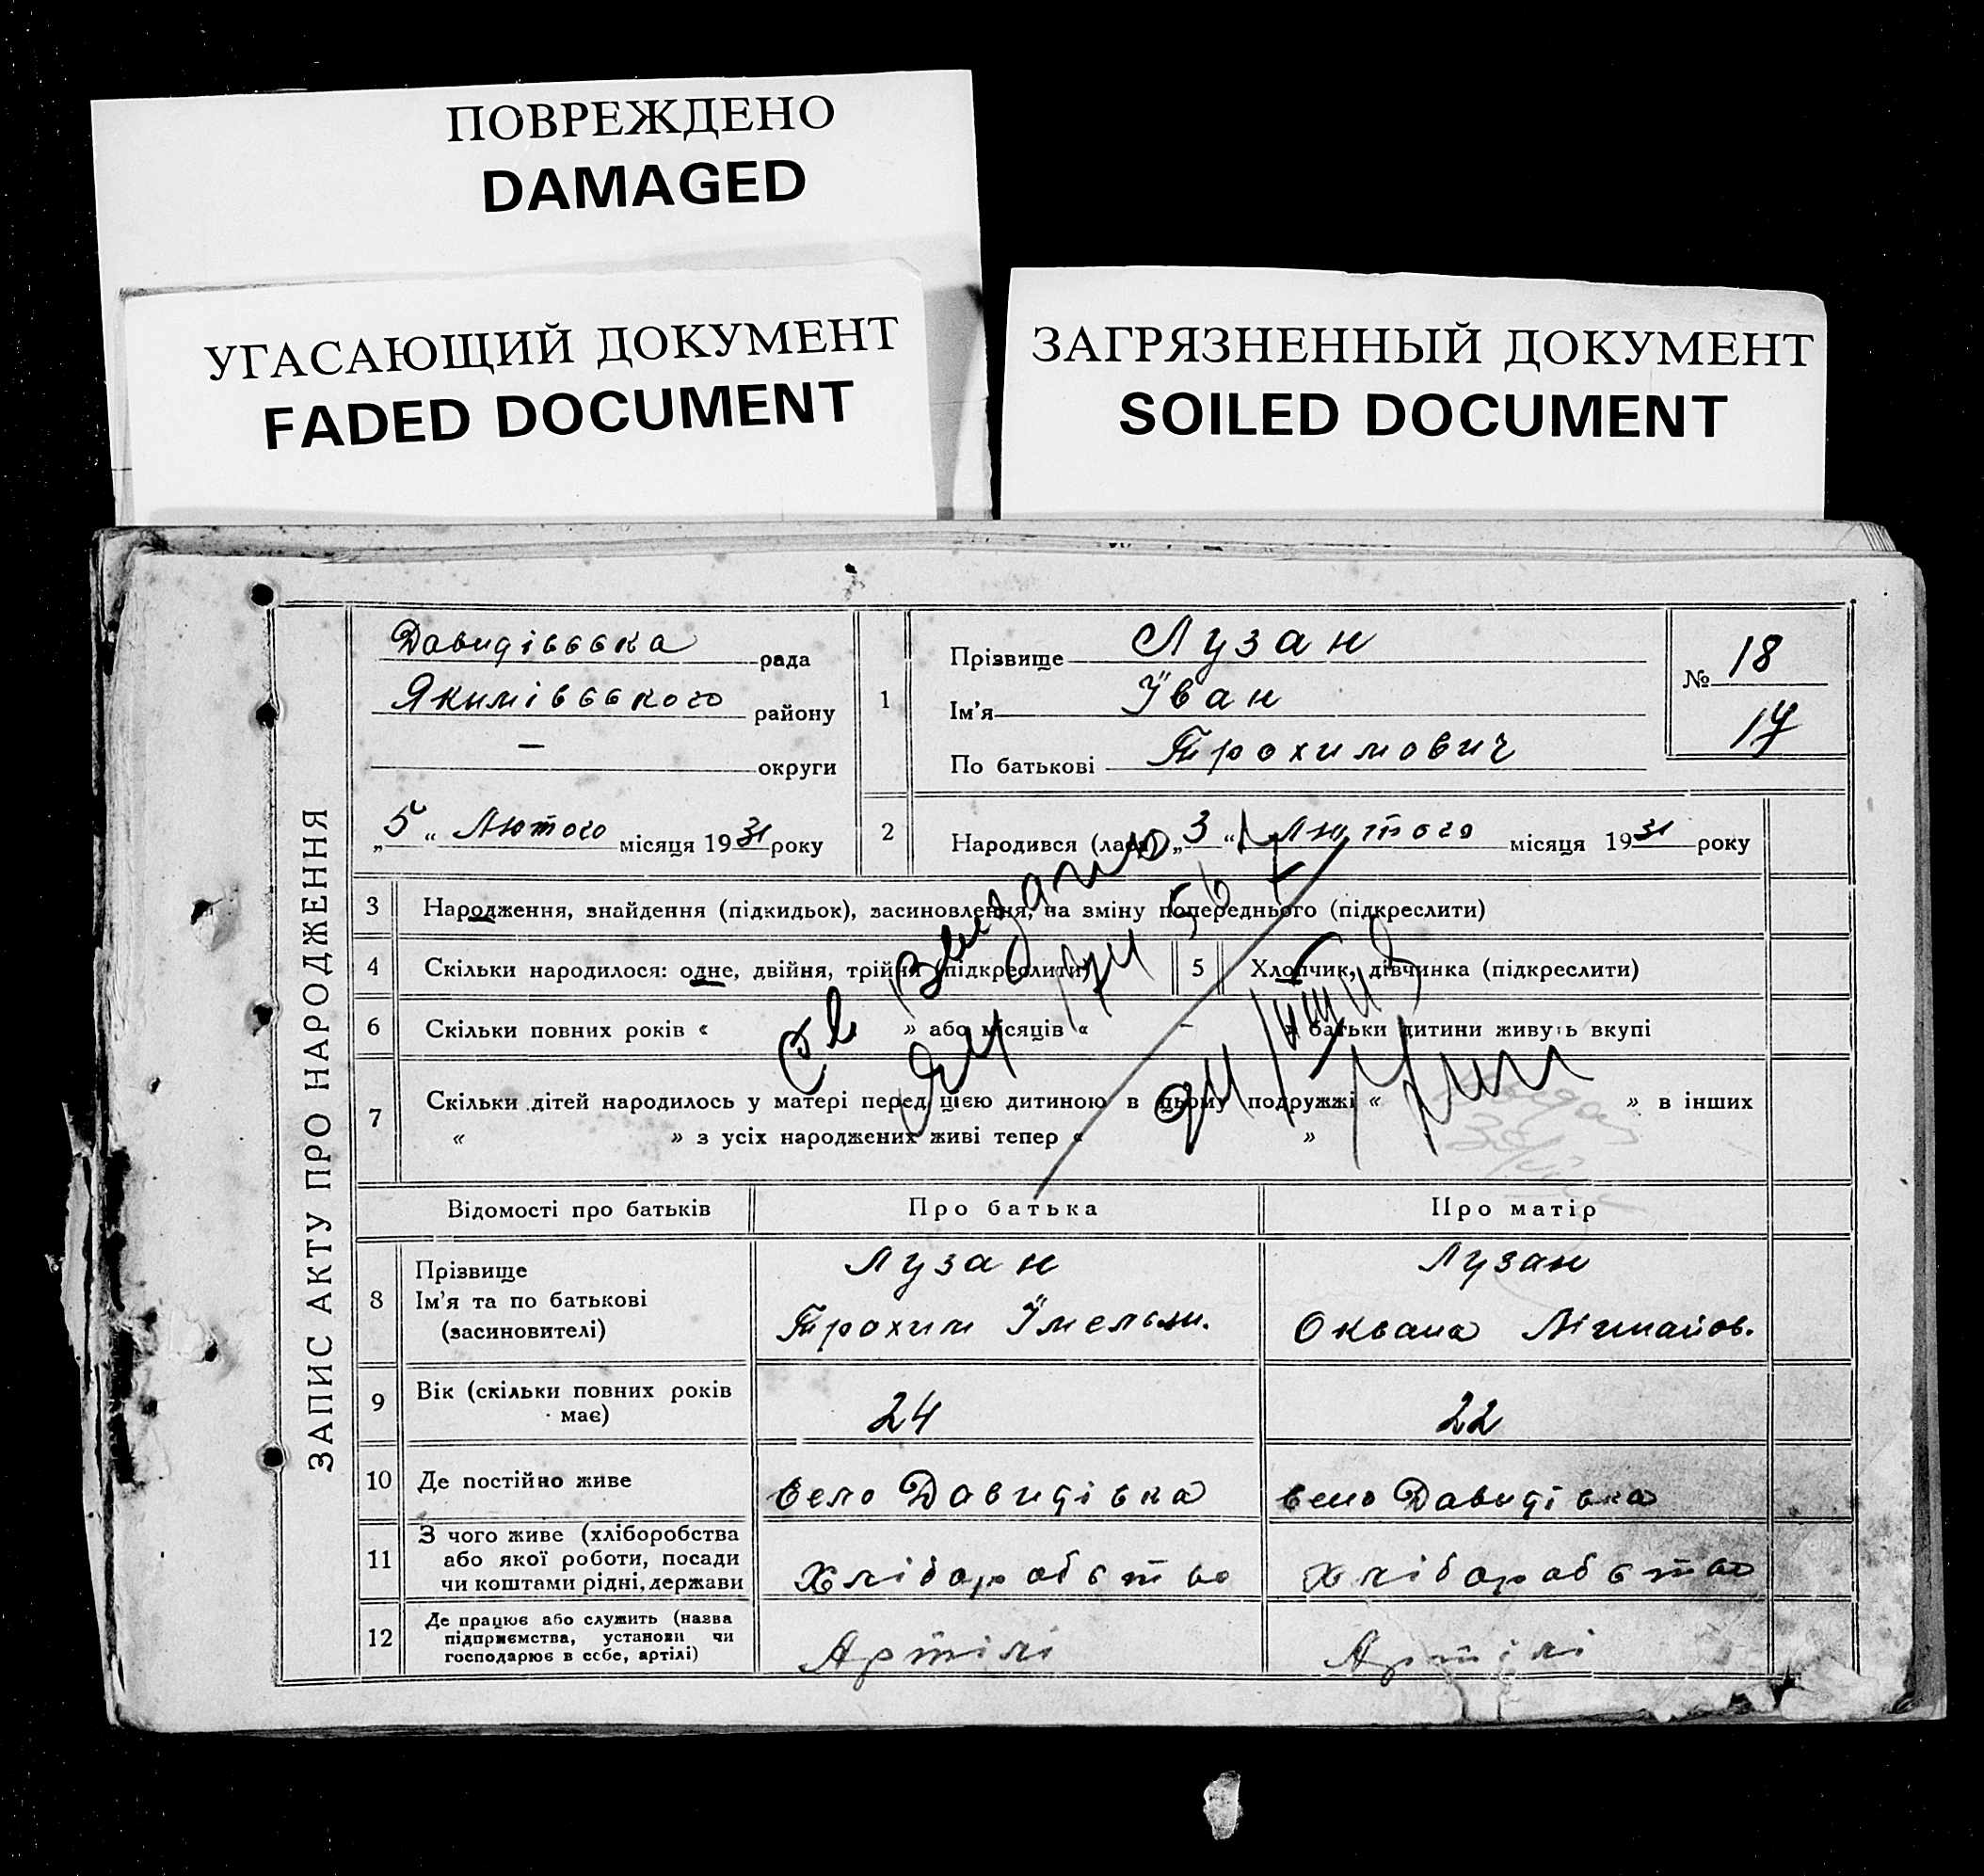 ПОВРЕЖДЕНО
DAMAGED
УГАСАЮЩИЙ ДОКУМЕНТ
FADED DOCUMENT
ЗАГРЯЗНЕННЫЙ ДОКУМЕНТ
SOILED DOCUMENT
ЗАПИС АКТУ ПРО НАРОДЖЕННЯ
Давидівська рада
Якимівського району
— округи
„5“ Лютого місяця 1931 року
1
Прізвище Лузан
Ім'я Їван
По батькові Трохимович
№ 18
17
2 Народився (лась) „3“ Лютого місяця 1931 року
3 Народження, знайдення (підкидьок), засиновлення, на зміну попереднього (підкреслити)
4 Скільки народилося: одне, двійня, трійня (підкреслити)
5 Хлопчик, дівчинка (підкреслити)
6 Скільки повних років « » або місяців « – » батьки дитини живуть вкупі
7 Скільки дітей народилось у матері перед цією дитиною в цьому подружжі « » в інших
« » з усіх народжених живі тепер « »
Відомості про батьків Про батька Про матір
8 Прізвище
Ім'я та по батькові
(засиновителі)
Лузан
Трохим Їмельян.
Лузан
Оксана
9 Вік (скільки повних років
має)
24
22
10 Де постійно живе
село Давидівка
село Давидівка
11 З чого живе (хліборобства
або якої роботи, посади
чи коштами рідні, держави
Хліборобство
Хліборобство
12 Де працює або служить (назва
підприємства, установи чи
господарює в себе, артілі)
Артілі
Артілі